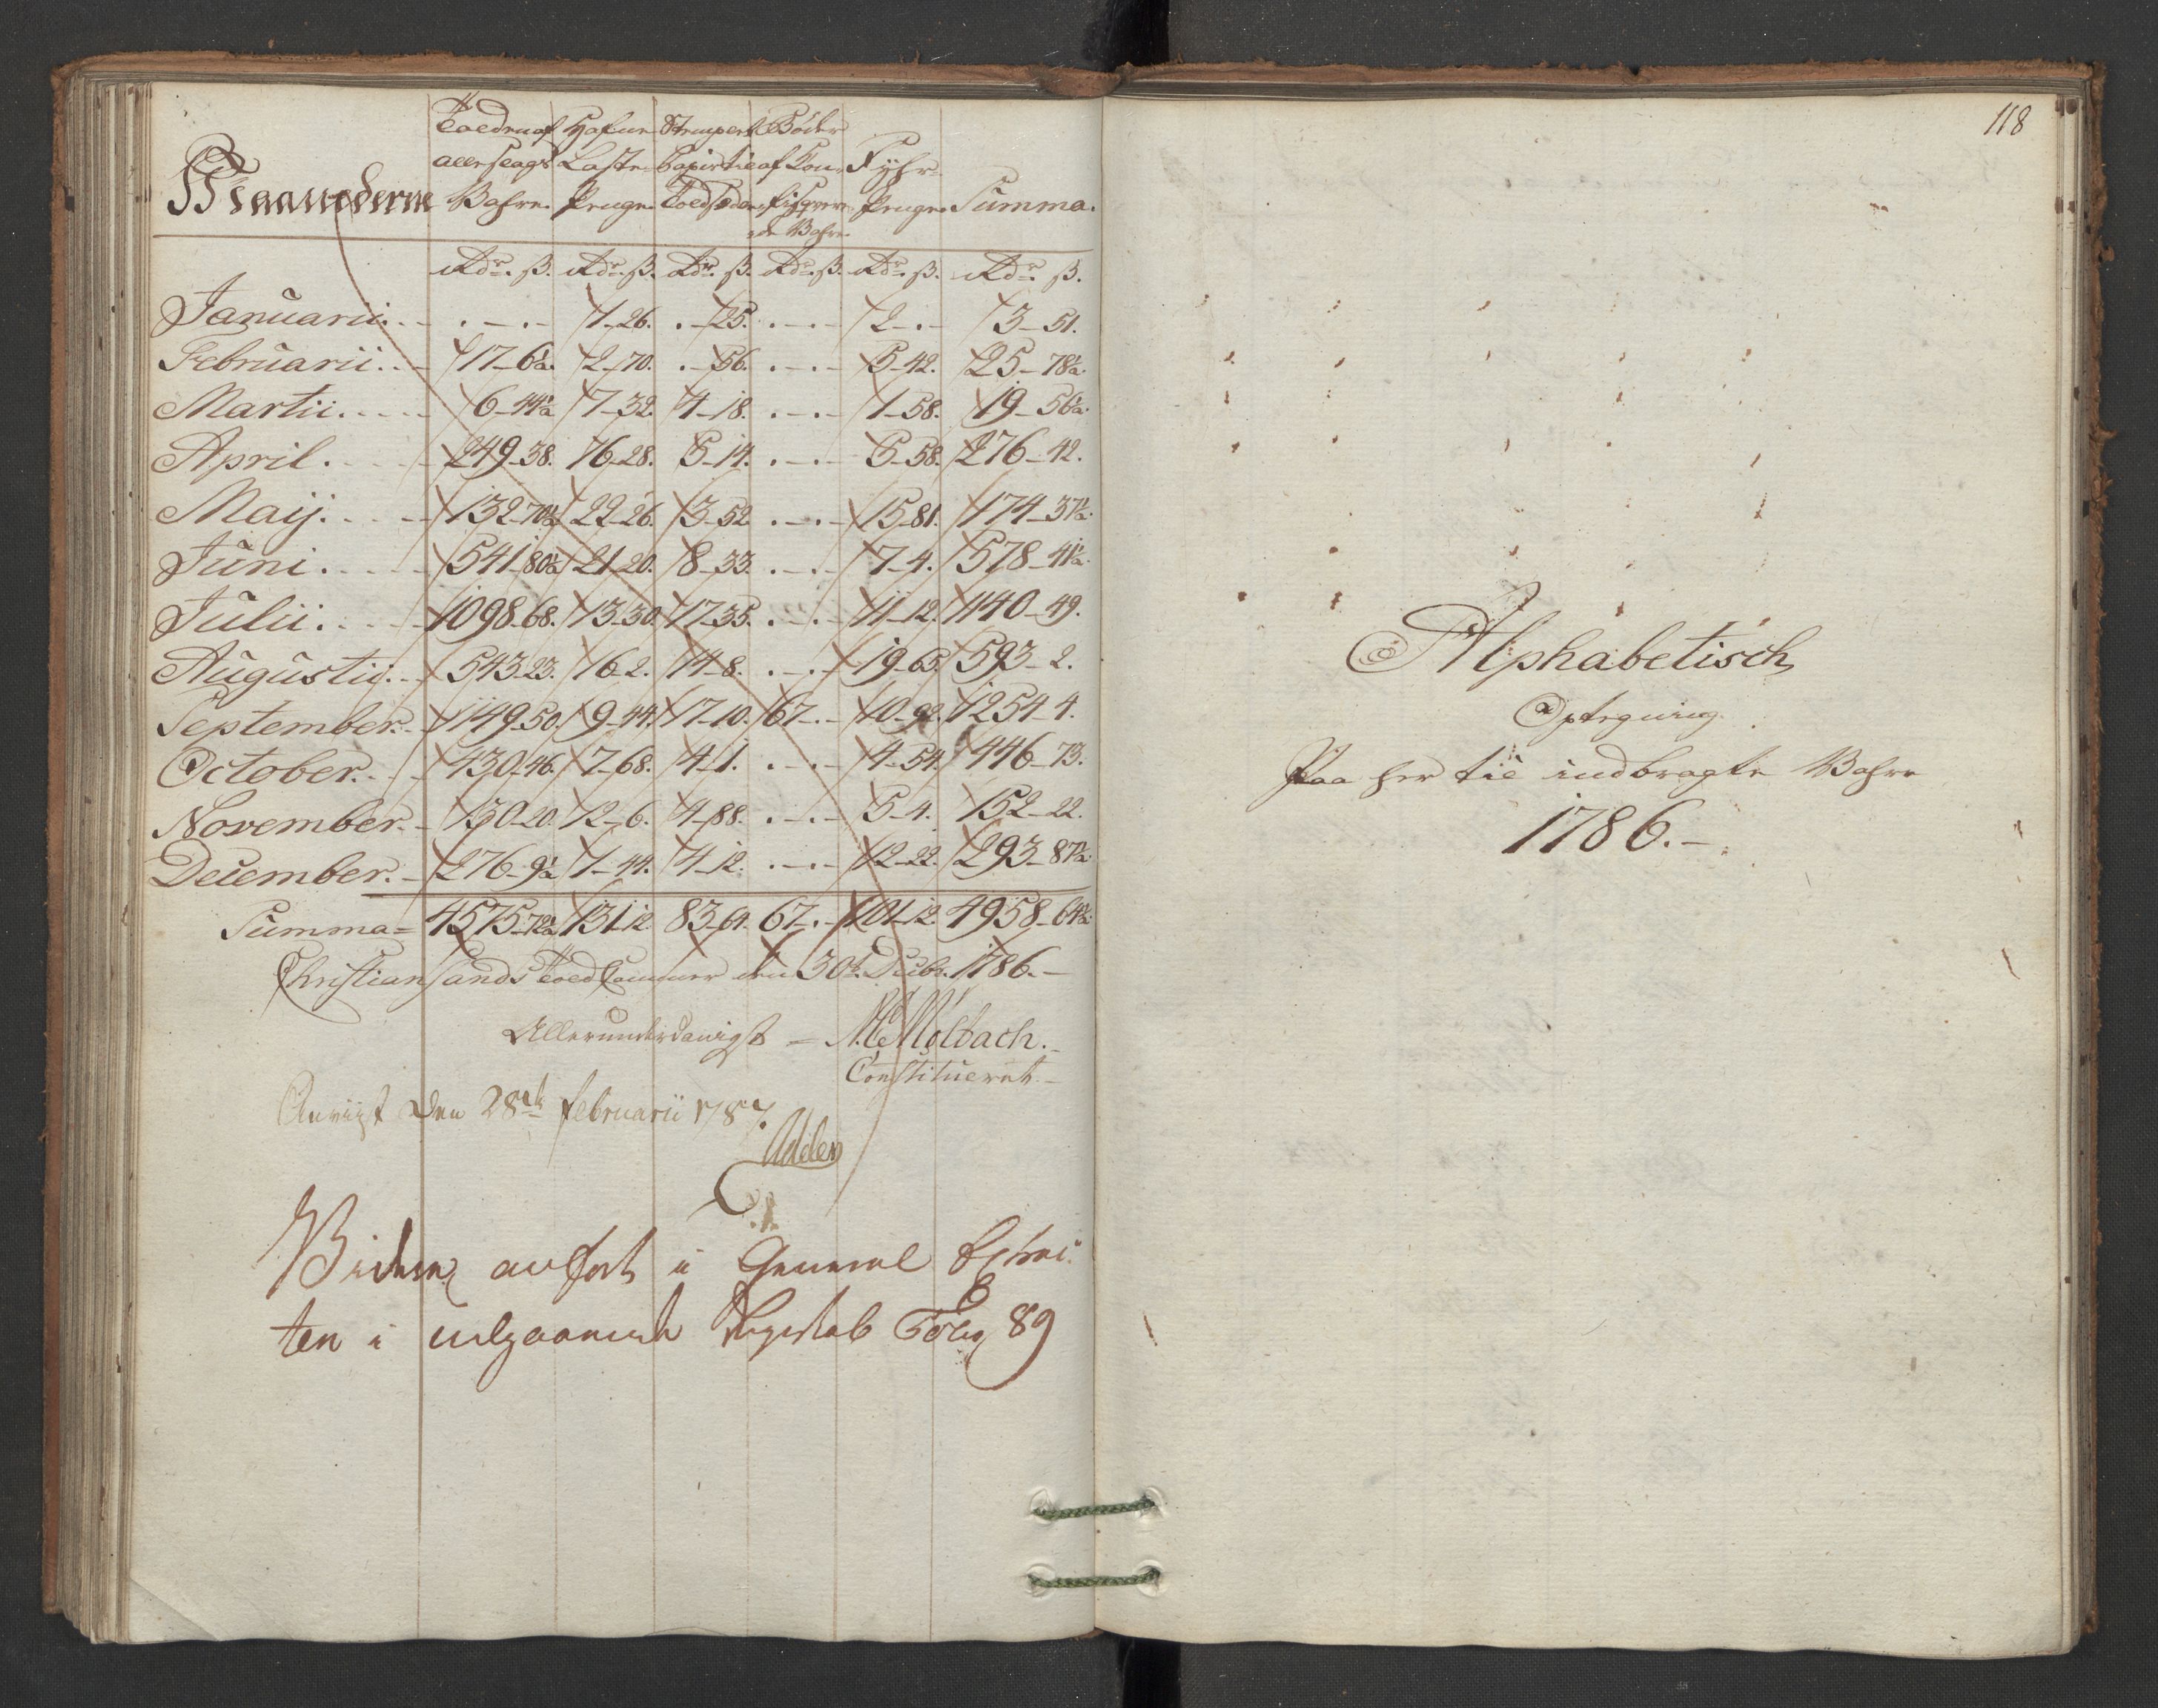 Maanederne
Tolden af allerslags Vahre. Hafne Laste Penge. Stempert Papir til Toldsedler Bøder af Confisqverede Vahre. Fyhr Penge. Summa.
Rdr. ß. Rdr. ß. Rdr. ß. Rdr. ß. Rdr. ß. Rdr. ß.
Januarii. . - . - . - 1-26. . - 25. . - . - 2 - . - 3 - 51.
Februarii. . - 17-6½. 2-70. . - 56. . - . - 5-42. 25 - 78½.
Martii. . . - 6-44½ 7-32. 4-18. . - . - 1-58. 19 - 56½.
April. . . - 249-38. 16-28. 5-14. . - . - 5-58. 276-42.
Maij. . . - 132-70½ 22-26. 3-52 . - . - 15-81. 174-37½.
Juni. . . - 541-80½ 21-20. 8-33. . - . - 7-4. 578-41½.
Julii. . . - 1098-68. 13-30. 17-35. . - . - 11-12. 1140-49.
Augustii. . - 543-23. 16-2. 14-8. . - . - 19-65. 593-2.
September. - 1149-50. 9-44. 17-10. 67 - . - 10-92. 1254-4.
October. . - 430-46. 7-68. 4-1. . - . - 4-54. 446-73.
November. - 130-20. 12-6. 4-88. . - . - 5-4. 152-22.
December. - 276-9½ 1-44. 4-12. . - . - 12-22. 293-87½.
Summa = 4575-72½ 131-12 83-64. 67 - . - 101-12. 4958-64½.
Christiansands Toldkammer den 30te Decbr. 1786. -
Allerunderdanigst - Mølbach. -
Constitueret. -
den 28de Februarii 1787.
Adeler
anført i General Extrac
ten i Regnskab Folio 89
118
Alphabetisch
Optegning
Paa her til indbragte Vahre
1786. -